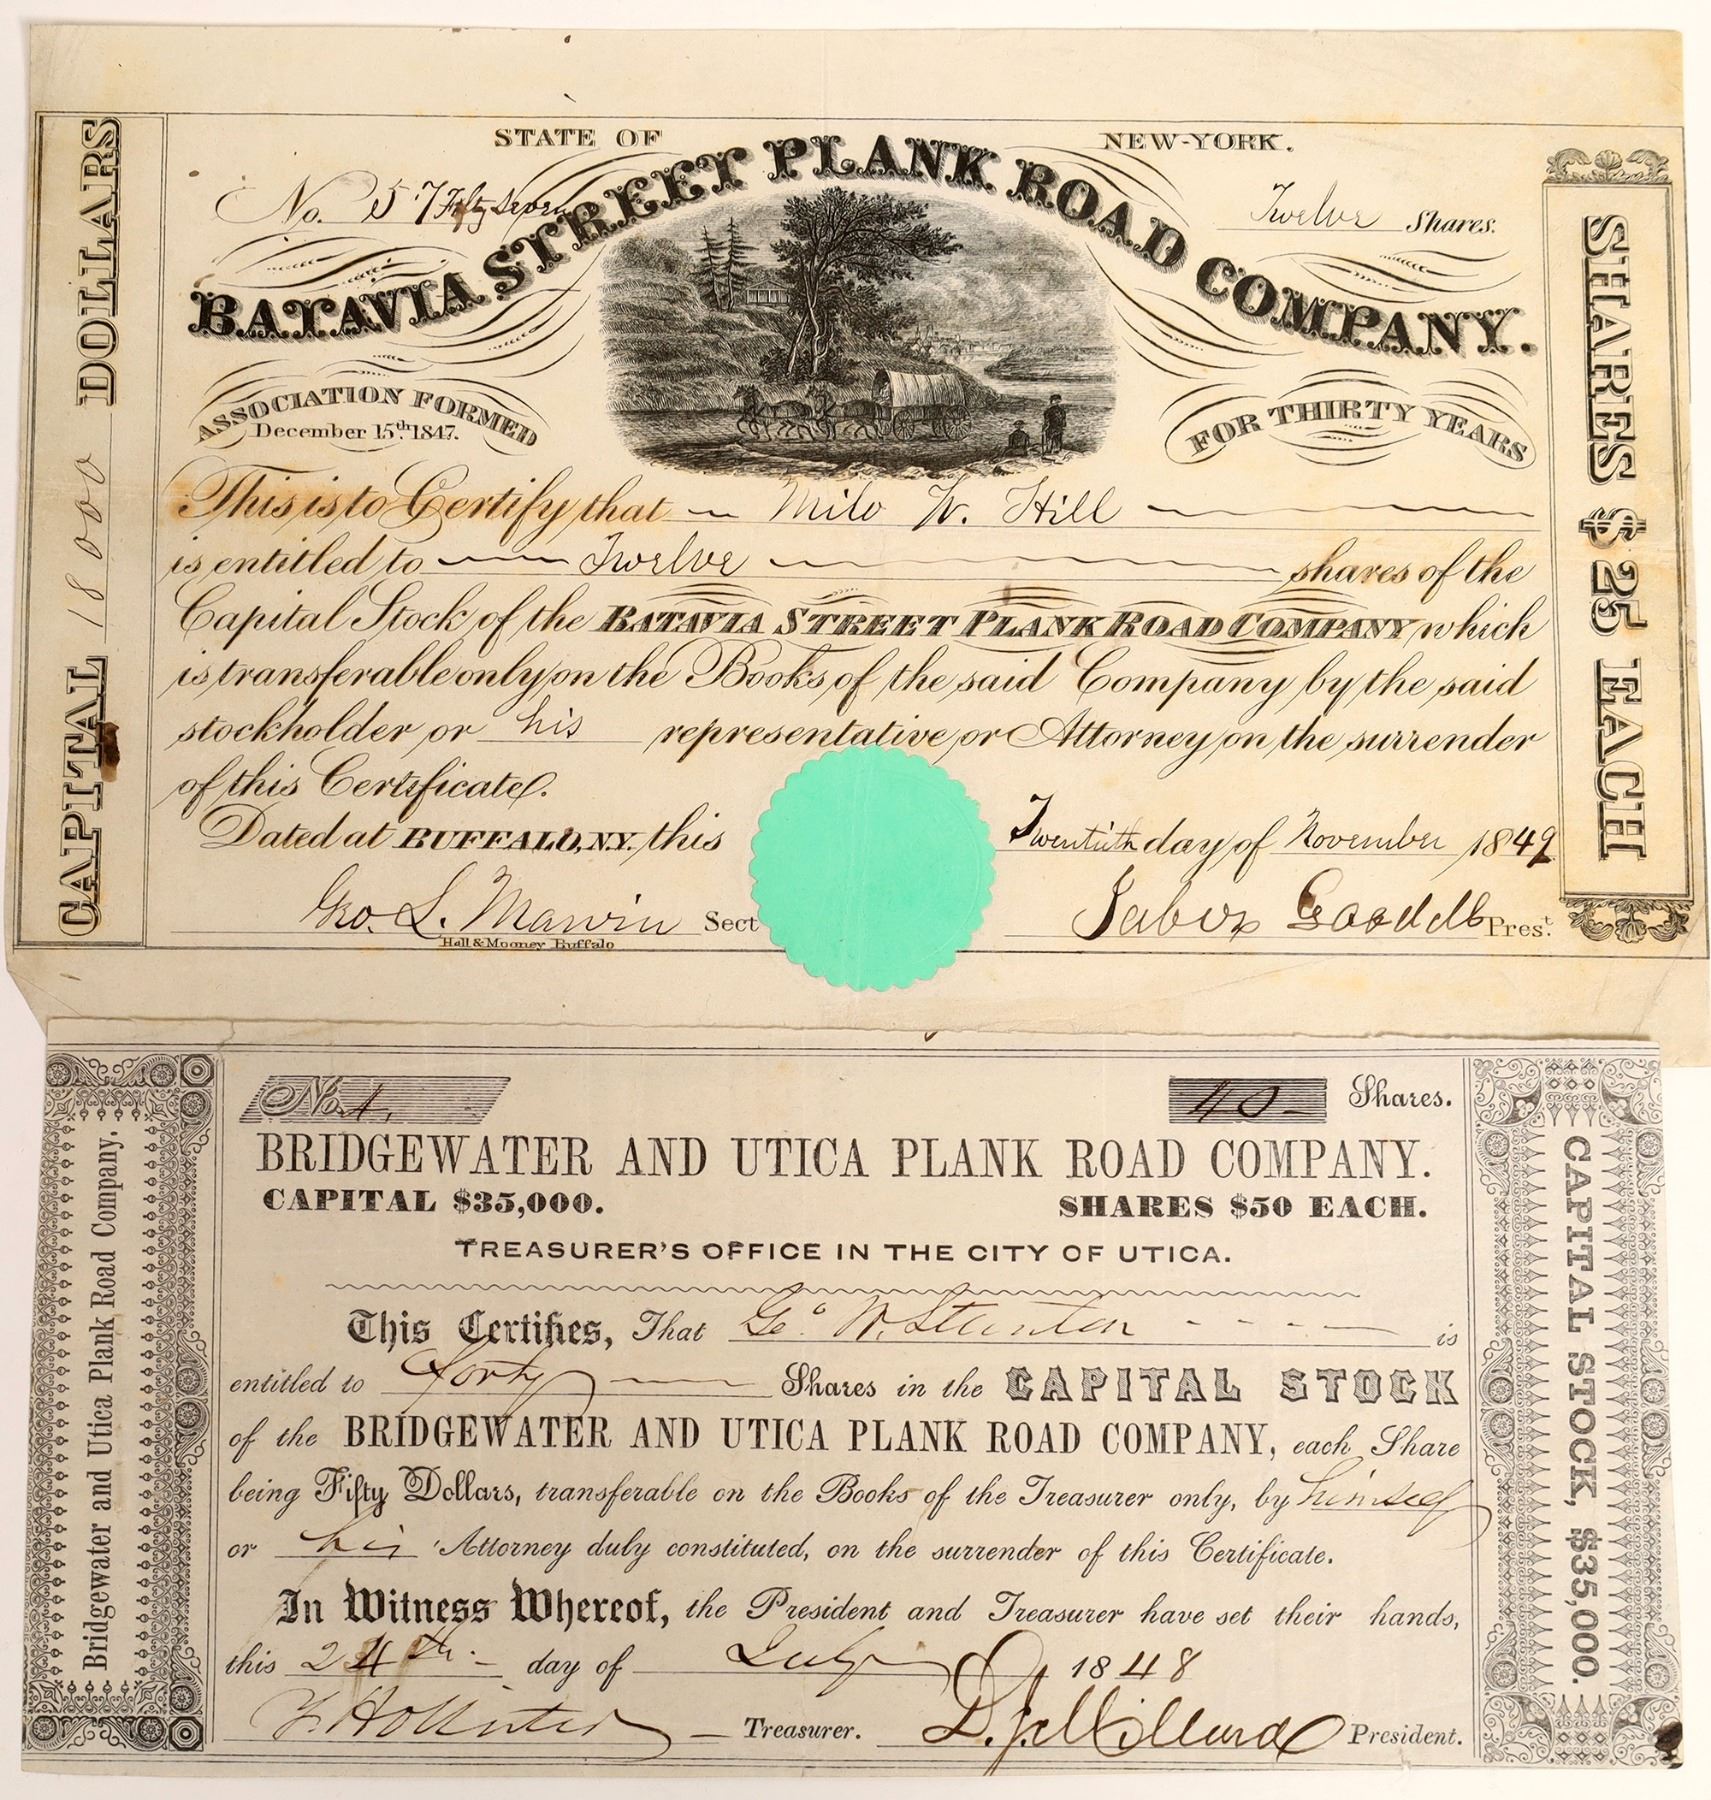 STATE OF NEW-YORK.
No. 57 Fifty Seven
Twelve Shares.
BATAVIA STREET PLANK ROAD COMPANY.
ASSOCIATION FORMED
December 15th. 1847.
FOR THIRTY YEARS
CAPITAL 18000 DOLLARS
SHARES $25 EACH
This is to Certify that Milo W. Hill
is entitled to Twelve shares of the
Capital Stock of the BATAVIA STREET PLANK ROAD COMPANY which
is transferable only on the Books of the said Company by the said
stockholder or his representative or Attorney on the surrender
of this Certificate.
Dated at BUFFALO, N.Y. this Twentieth day of November 1849
Geo. L. Marvin Sect
Jabez Goodell Prest.
Hall & Mooney Buffalo
No. 4.
40 Shares.
BRIDGEWATER AND UTICA PLANK ROAD COMPANY.
CAPITAL $35,000. SHARES $50 EACH.
TREASURER'S OFFICE IN THE CITY OF UTICA.
This Certifies, That Geo W. Stanton is
entitled to forty Shares in the CAPITAL STOCK
of the BRIDGEWATER AND UTICA PLANK ROAD COMPANY, each Share
being Fifty Dollars, transferable on the Books of the Treasurer only, by himself
or his Attorney duly constituted, on the surrender of this Certificate.
In Witness Whereof, the President and Treasurer have set their hands,
this 24th. day of July 1848
Hollister Treasurer. Millard President.
Bridgewater and Utica Plank Road Company.
CAPITAL STOCK, $35,000.